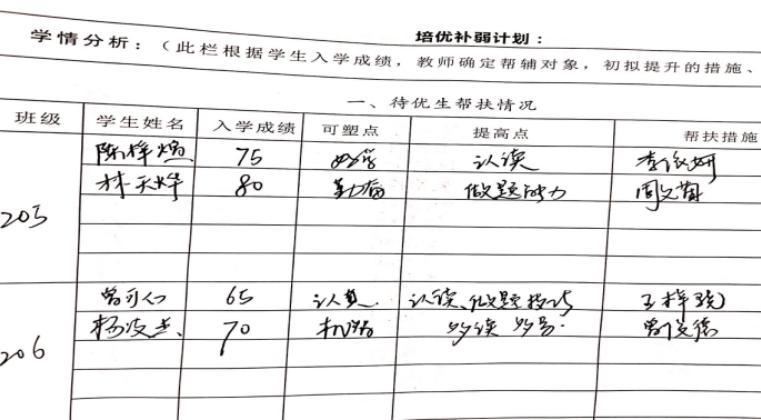 培优补弱计划：
学情分析：（此栏根据学生入学成绩，教师确定帮辅对象，初拟提升的措施、
一、待优生帮扶情况
班级 学生姓名 入学成绩 可塑点 提高点 帮扶措施
陈梓 75 认读
205 林天烨 80 勤 做题能力 周
65 认真 认读、做题技巧 王梓
206 杨凌 70 机 多读 多写